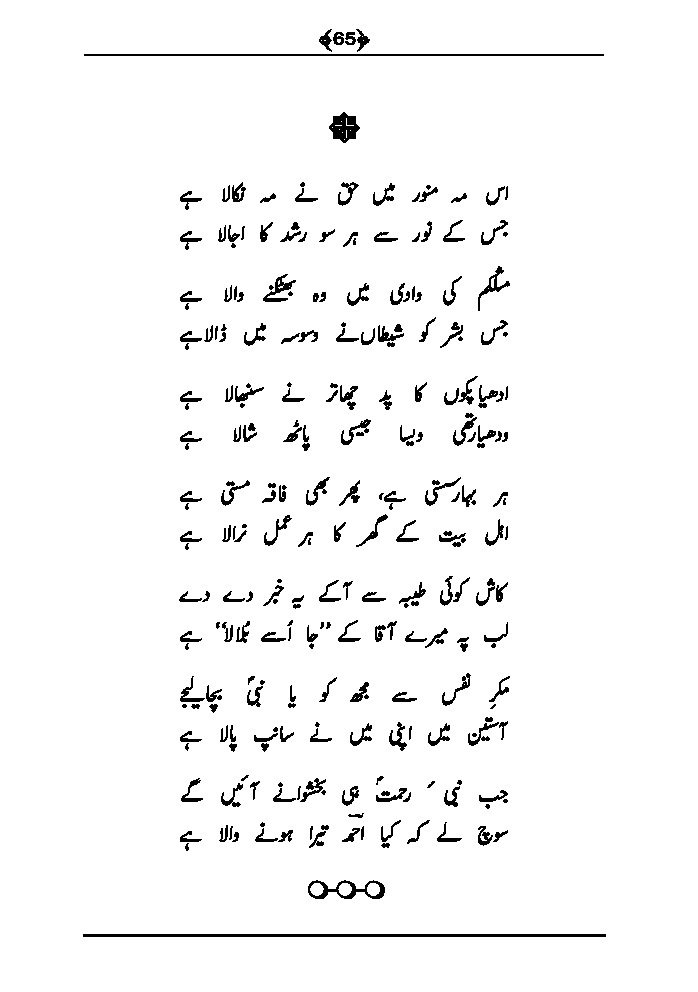 65
اس مہ منور میں حق نے مہ نکالا ہے
جس کے نور سے ہر سو رشد کا اجالا ہے
مشکم کی وادی میں وہ بھٹکنے والا ہے
جس بشر کو شیطاں نے وسوسہ میں ڈالا ہے
ادھیاپکوں کا پد چھاتر نے سنبھالا ہے
ودھیارتھی ویسا جیسی پاٹھ شالا ہے
ہر بہار سستی ہے، پھر بھی فاقہ مستی ہے
اہل بیت کے گھر کا ہر عمل نرالا ہے
کاش کوئی طیبہ سے آکے یہ خبر دے دے
لب پہ میرے آقا کے ’’جا اُسے بُلا لا‘‘ ہے
مکرِ نفس سے مجھ کو یا نبیؐ بچا لیجے
آستین میں اپنی میں نے سانپ پالا ہے
جب نبی ٔ رحمتؐ ہی بخشوانے آئیں گے
سوچ لے کہ کیا احمدؔ تیرا ہونے والا ہے